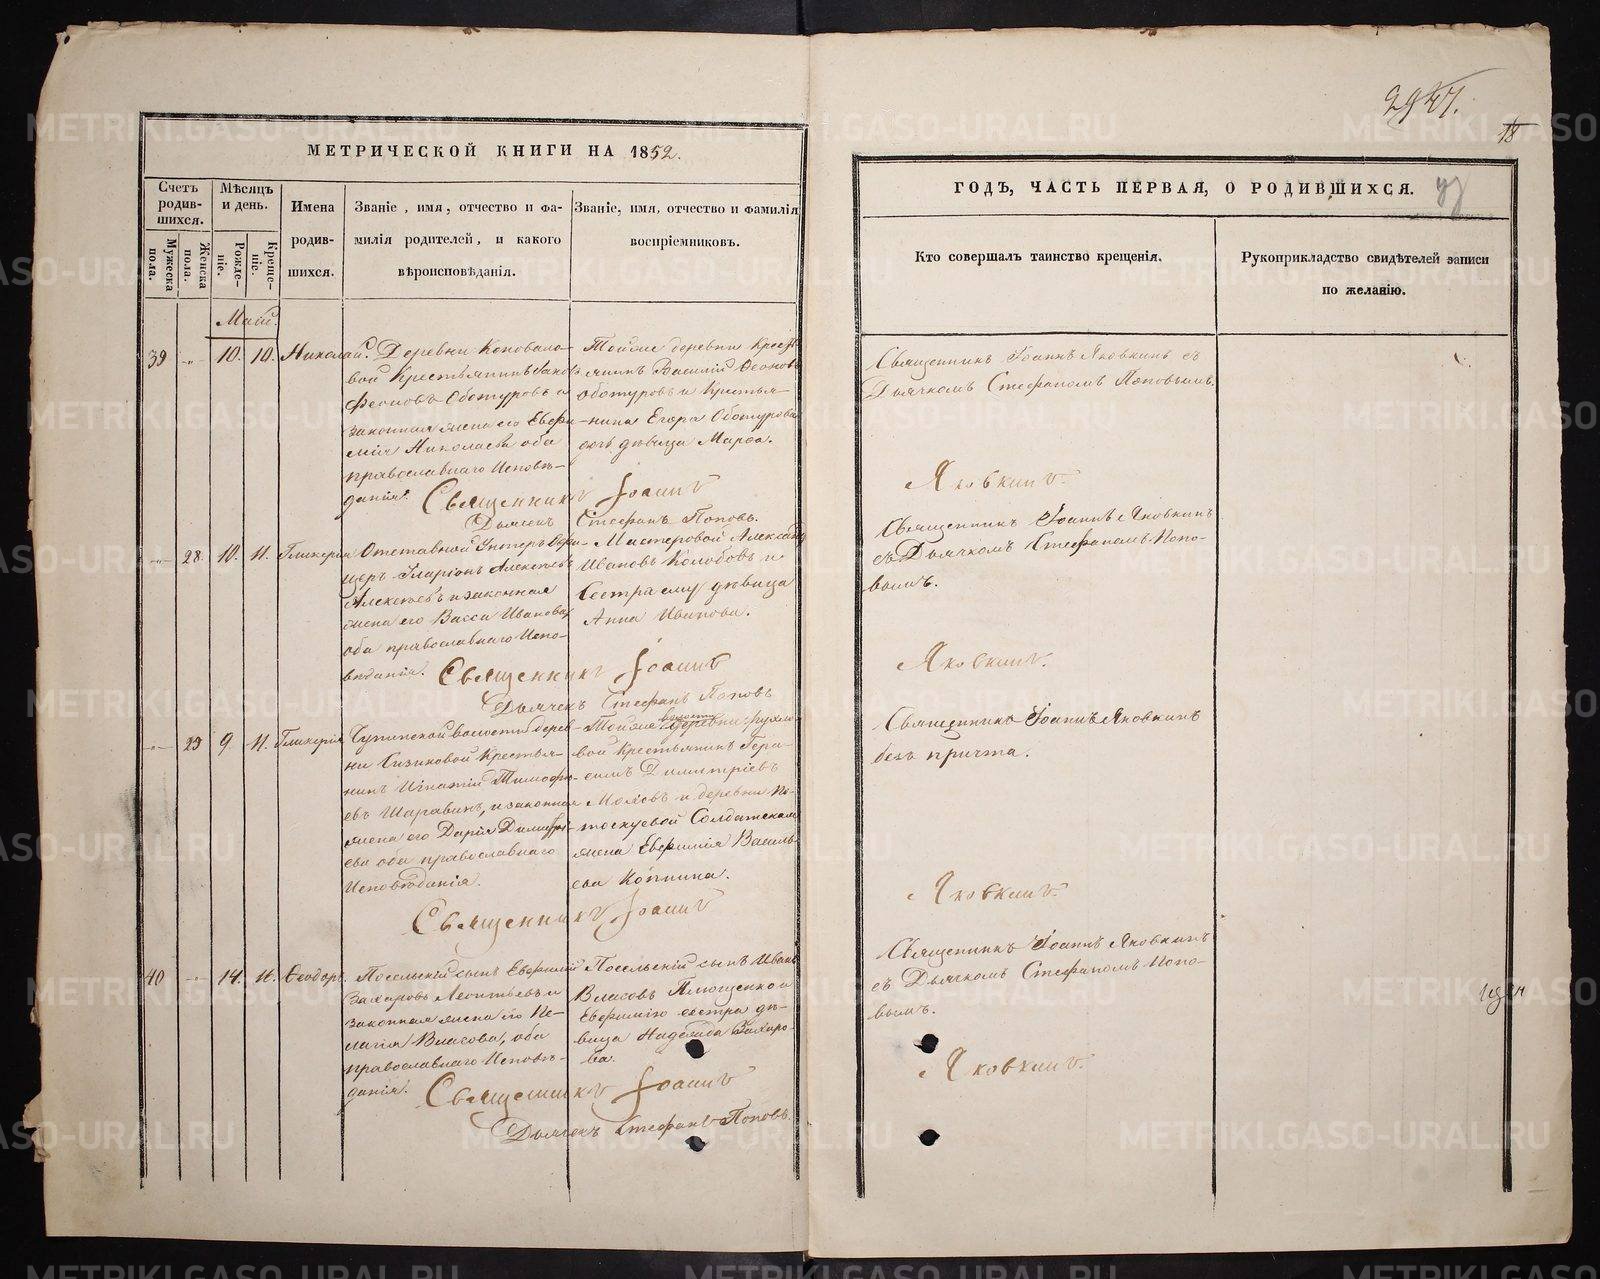 МЕТРИЧЕСКОЙ КНИГИ НА 1852.
Счетъ родив-шихся.
Мужеска пола.
Женска пола.
Мѣсяцъ и день.
Рожде-ніе.
Креще-ніе.
Имена
родив-
шихся.
Званіе, имя, отчество и фа-
милія родителей, и какого
вѣроисповѣданія.
Званіе, имя, отчество и фамилія
воспріемниковъ.
Май.
39 -„- 10. 10. Николай.
Деревни Коновало-
вой Крестьянинъ
Феоновъ Оботуровъ и
законная жена его Евфи-
мія Николаева оба
православнаго Исповѣ-
данія.
Тойже деревни Крестья-
нинъ Василій Феоновъ
Оботуровъ и Крестья-
нина Егора Оботурова
дочь дѣвица Марѳа.
Священникъ Іоаннъ
Дьячекъ Стефанъ Поповъ.
-„- 28. 10. 11. Гликерія
Отставной Унтеръ Офи-
церъ Иларіонъ Алексѣевъ
Алексѣевъ и законная
жена его Васса Иванова,
оба православнаго Испо-
вѣданія.
Мастеровой Александръ
Ивановъ Колобовъ и
Сестра ему дѣвица
Анна Иванова.
Священникъ Іоаннъ
Дьячекъ Стефанъ Поповъ
-„- 29 9. 11. Гликерія
волости дерев-
ни Сизиковой Крестья-
нинъ Игнатій Тимофе-
евъ Шаравинъ, и законная
жена его Дарія Димитрі-
ева оба православнаго
Исповѣданія.
Тойже волости деревни
вой Крестьянинъ Гера-
симъ Димитріевъ
и деревни По-
тоскуевой Солдатская
жена Евфимія Василь-
ева
Священникъ Іоаннъ
40 -„- 14. 16. Ѳеодоръ.
Посельскій сынъ Евфимій
Захаровъ Леонтьевъ и
законная жена его Пе-
лагія Власова, оба
православнаго Исповѣ-
данія.
Посельскій сынъ Иванъ
Власовъ и
Евфимію сестра дѣ-
вица Надежда Захаро-
ва.
Священникъ Іоаннъ
Дьячекъ Стефанъ Поповъ.
18
ГОДЪ, ЧАСТЬ ПЕРВАЯ, О РОДИВШИХСЯ.
Кто совершалъ таинство крещенія.
Рукоприкладство свидѣтелей записи
по желанію.
Священникъ Іоаннъ Яковкинъ съ
Дьячкомъ Стефаномъ Поповымъ.
Яковкинъ.
Священникъ Іоаннъ Яковкинъ
съ Дьячкомъ Стефаномъ Попо-
вымъ.
Яковкинъ.
Священникъ Іоаннъ Яковкинъ
безъ причта.
Яковкинъ.
Священникъ Іоаннъ Яковкинъ
съ Дьячкомъ Стефаномъ Попо-
вымъ.
Яковкинъ.
METRIKI.GASO-URAL.RU